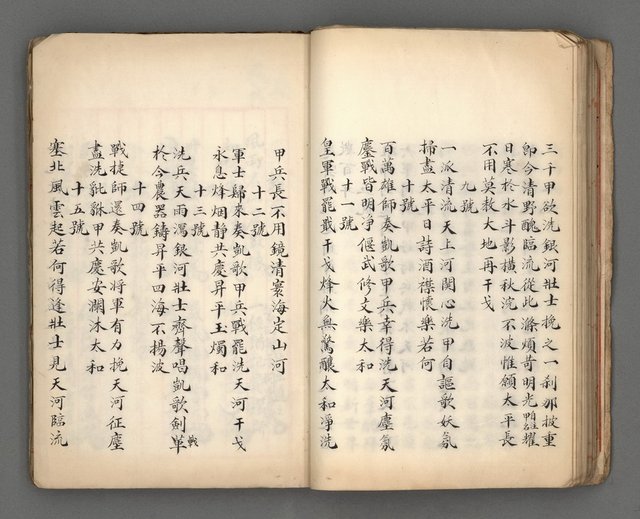 三千甲欲洗銀河壯士挽之一剎那披重
即今清野醜臨流從此滌煩苛明光照耀
日寒於水斗影橫秋浣不波惟願太平長
不用莫教大地再干戈
九號
一派清流天上河関心洗甲自謳歌妖氛
掃盡太平日詩酒襟懷樂若何
十號
百萬雄師奏凱歌甲兵幸得洗天河塵氛
鏖戰皆明淨偃武修文樂太和
十一號
皇軍戰罷戢干戈烽火無驚釀太和淨洗
甲兵長不用鏡清寰海定山河
十二號
軍士歸來奏凱歌甲兵戰罷洗天河干戈
永息烽烟靜共慶昇平玉燭和
十三號
洗兵天雨瀉銀河壯士齊聲唱凱歌劍戟
於今農器鑄昇平四海不揚波
十四號
戰捷師還奏凱歌將軍有力挽天河征塵
盡洗貔貅甲共慶安瀾沐太和
十五號
塞北風雲起若何得逢壯士見天河臨流